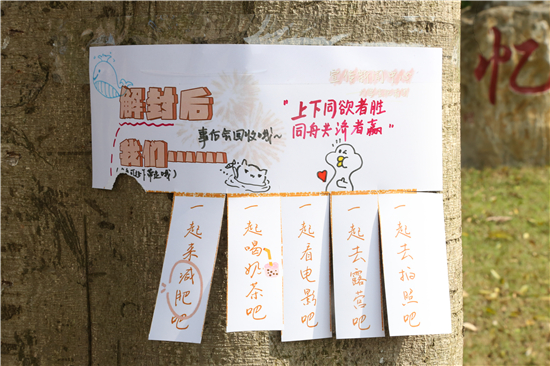 解封后
事后会回收哦~
我们……
"上下同欲者胜
同舟共济者赢"
一起来减肥吧
一起喝奶茶吧
一起看电影吧
一起去露营吧
一起去拍照吧
忆